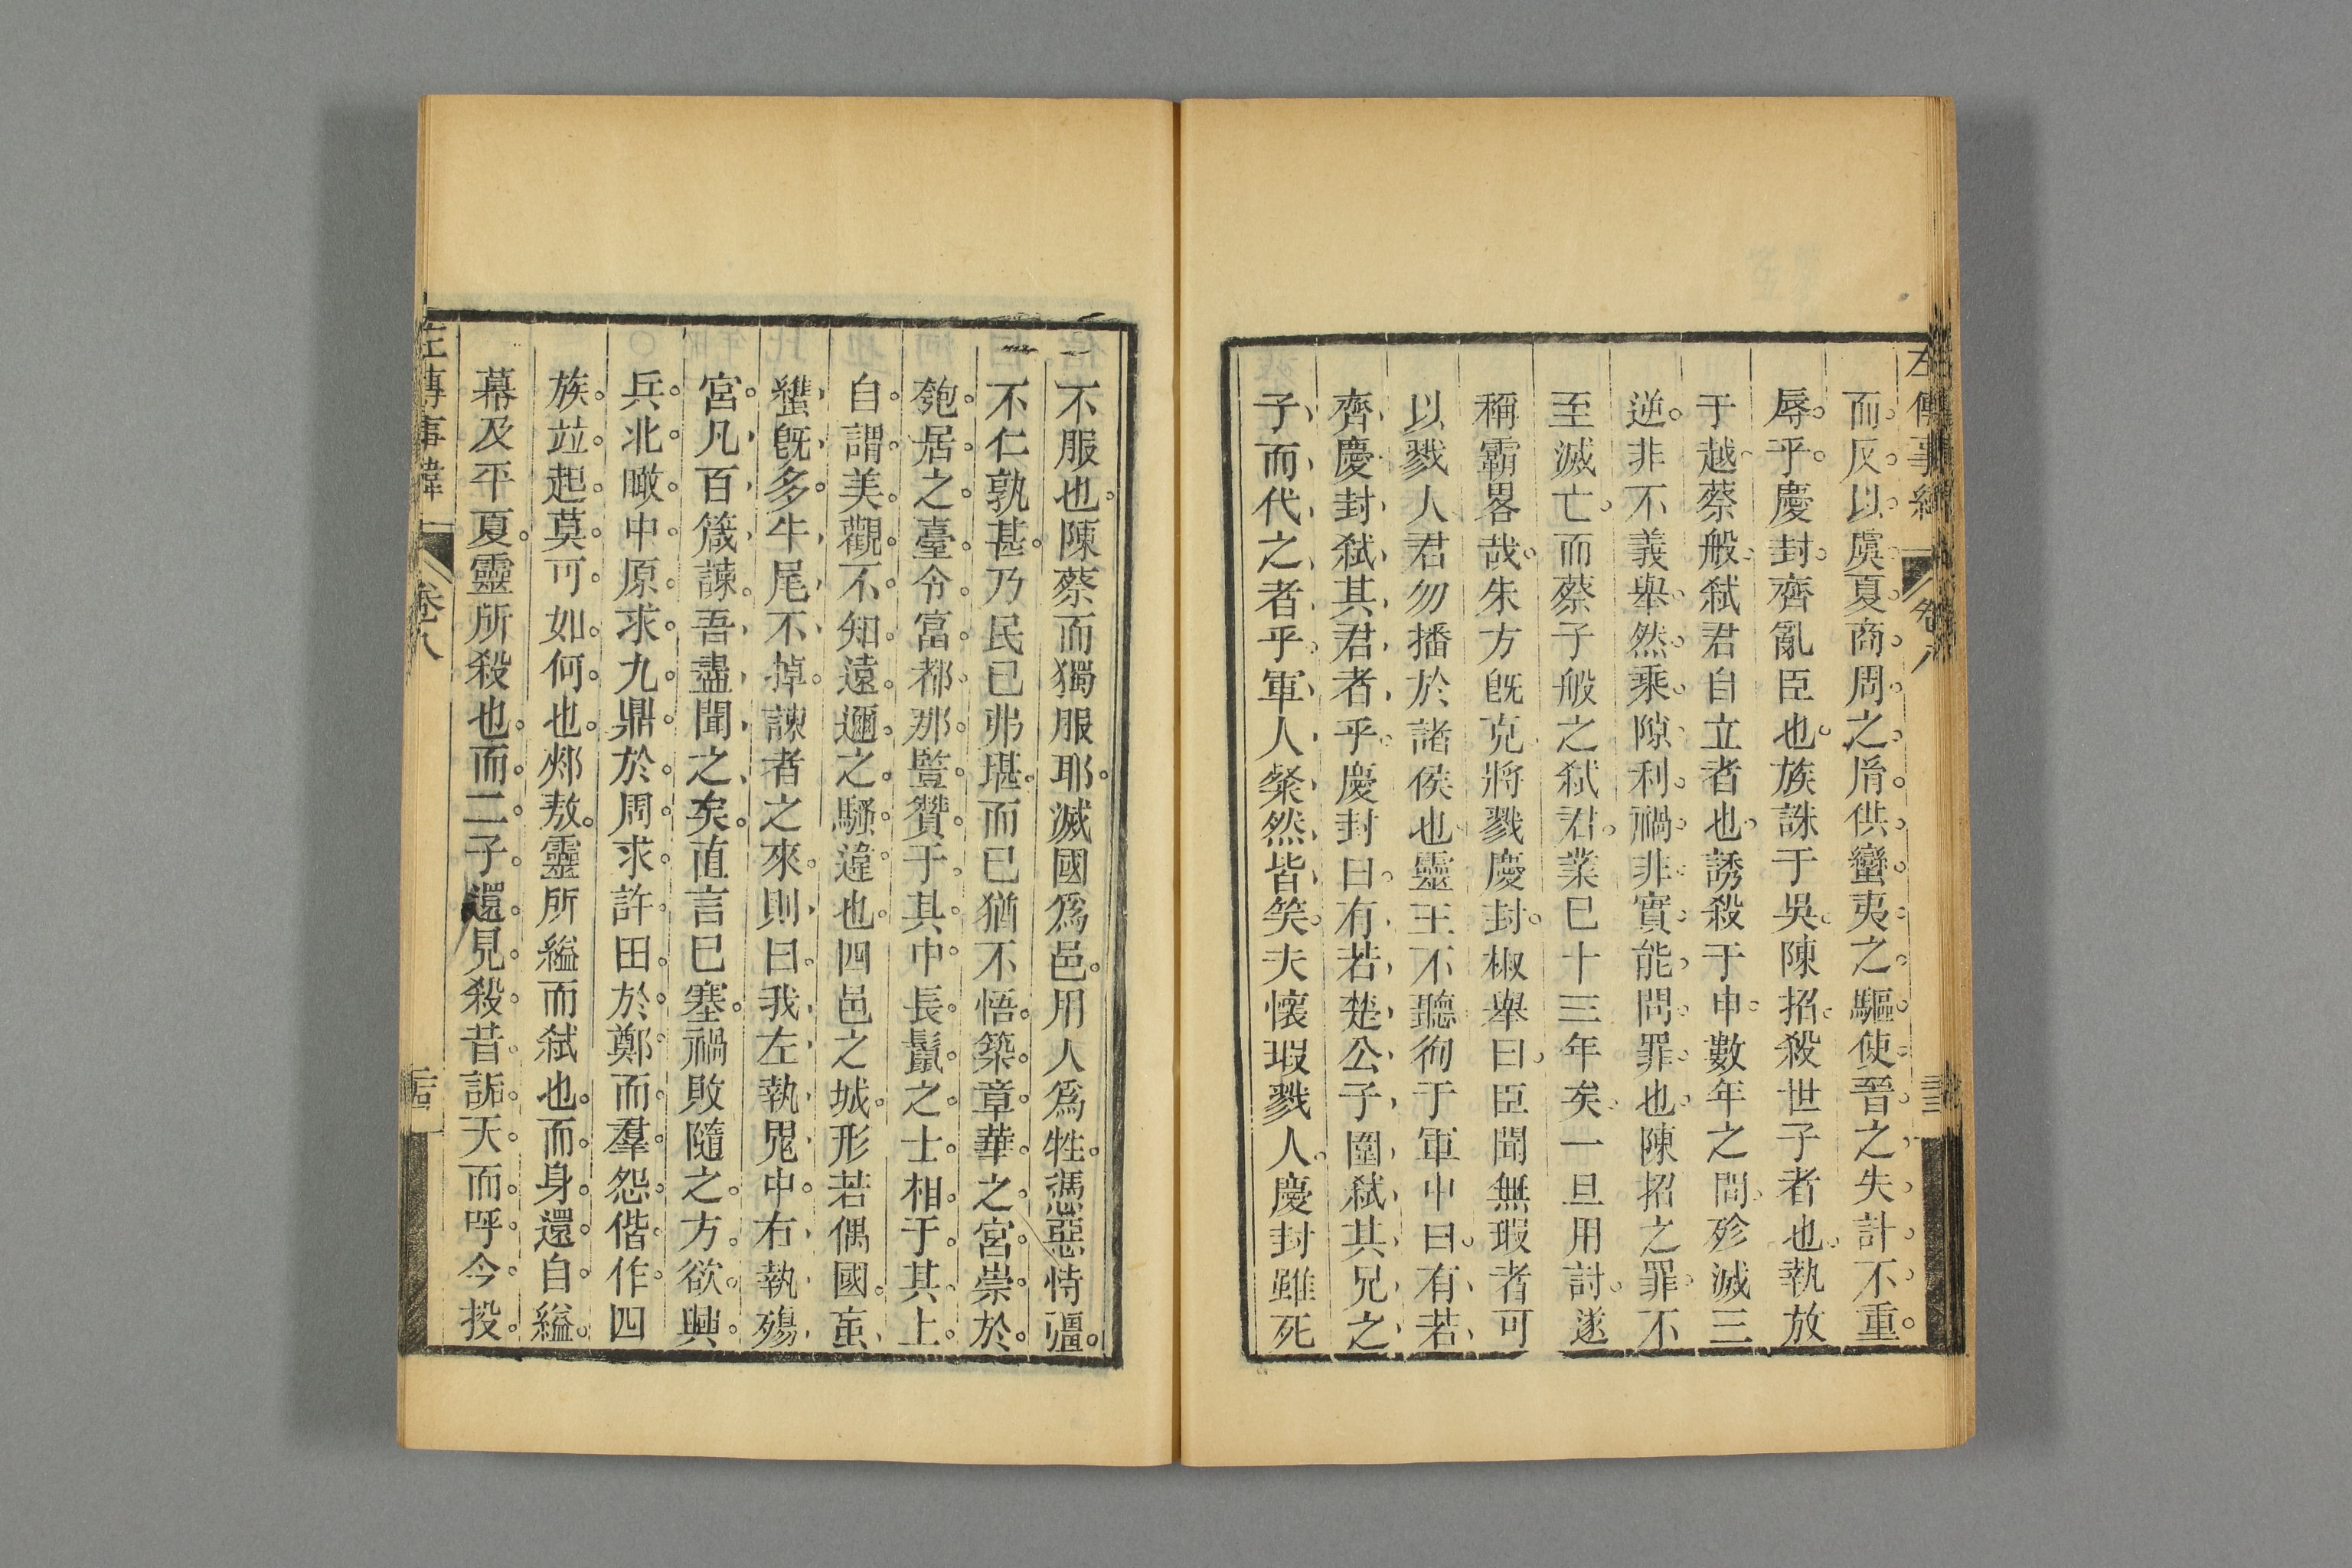 左傳事緯 卷八
而反以虞夏商周之胄供蠻夷之驅使晉之失計不重
辱乎慶封齊亂臣也族誅于吳陳招殺世子者也執放
于越蔡般弑君自立者也誘殺于申數年之間殄滅三
逆非不義舉然乘隙利禍非實能問罪也陳招之罪不
至滅亡而蔡子般之弑君業已十三年矣一旦用討遂
稱霸畧哉朱方旣克將戮慶封椒舉曰臣聞無瑕者可
以戮人君勿播於諸侯也靈王不聽徇于軍中曰有若
齊慶封弑其君者乎慶封曰有若楚公子圍弑其兄之
子而代之者乎軍人粲然皆笑夫懷瑕戮人慶封雖死
不服也陳蔡而獨服耶滅國爲邑用人爲牲憑惡恃彊
不仁孰甚乃民已弗堪而已猶不悟築章華之宮崇於
匏居之臺令富都那豎贊于其中長鬣之士相于其上
自謂美觀不知遠邇之騷違也四邑之城形若偶國䖟
蠥旣多牛尾不掉諫者之來則曰我左執鬼中右執殤
宮凡百箴諫吾盡聞之矣直言巳塞禍敗隨之方欲興
兵北瞰中原求九鼎於周求許田於鄭而羣怨偕作四
族竝起莫可如何也郟敖靈所縊而弑也而身還自縊
幕及平夏靈所殺也而二子還見殺昔詬天而呼今投
左傳事緯 卷八